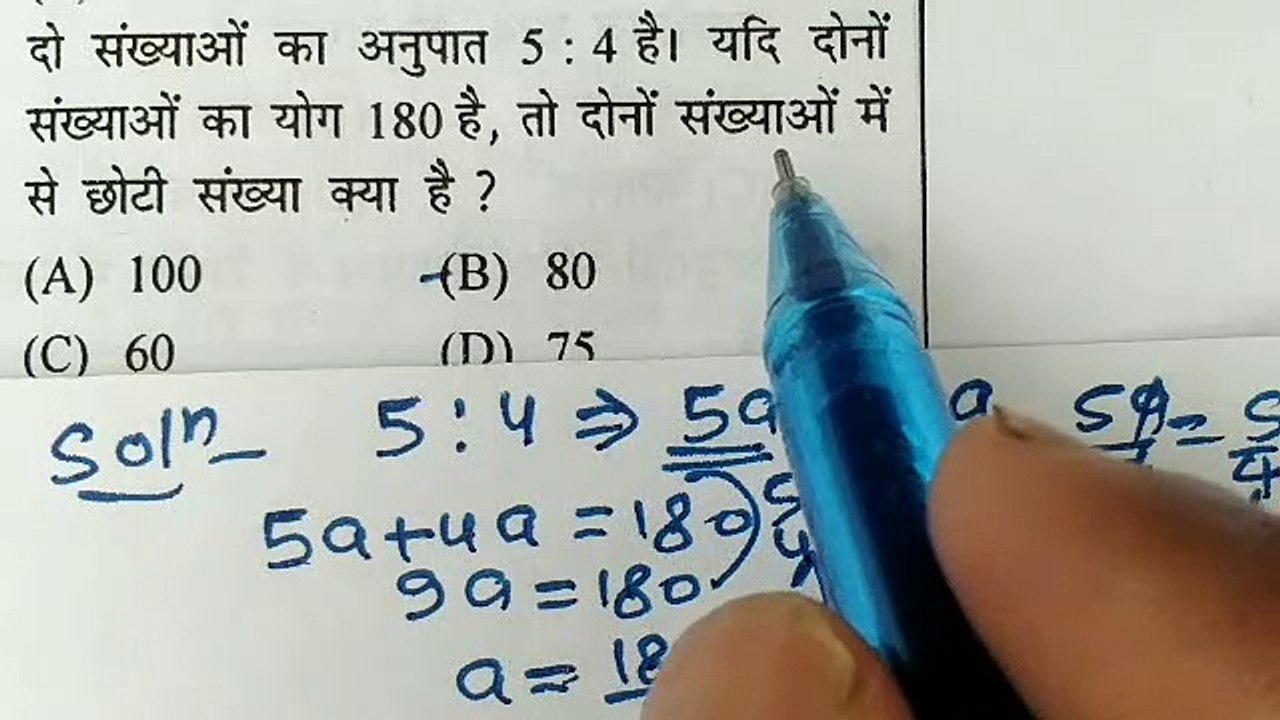 दो संख्याओं का अनुपात 5 : 4 है। यदि दोनों
संख्याओं का योग 180 है, तो दोनों संख्याओं में
से छोटी संख्या क्या है ?
(A) 100 (B) 80
(C) 60 (D) 75
Soln 5 : 4 ⇒ 5a a
5a+4a = 180
9a = 180
a =